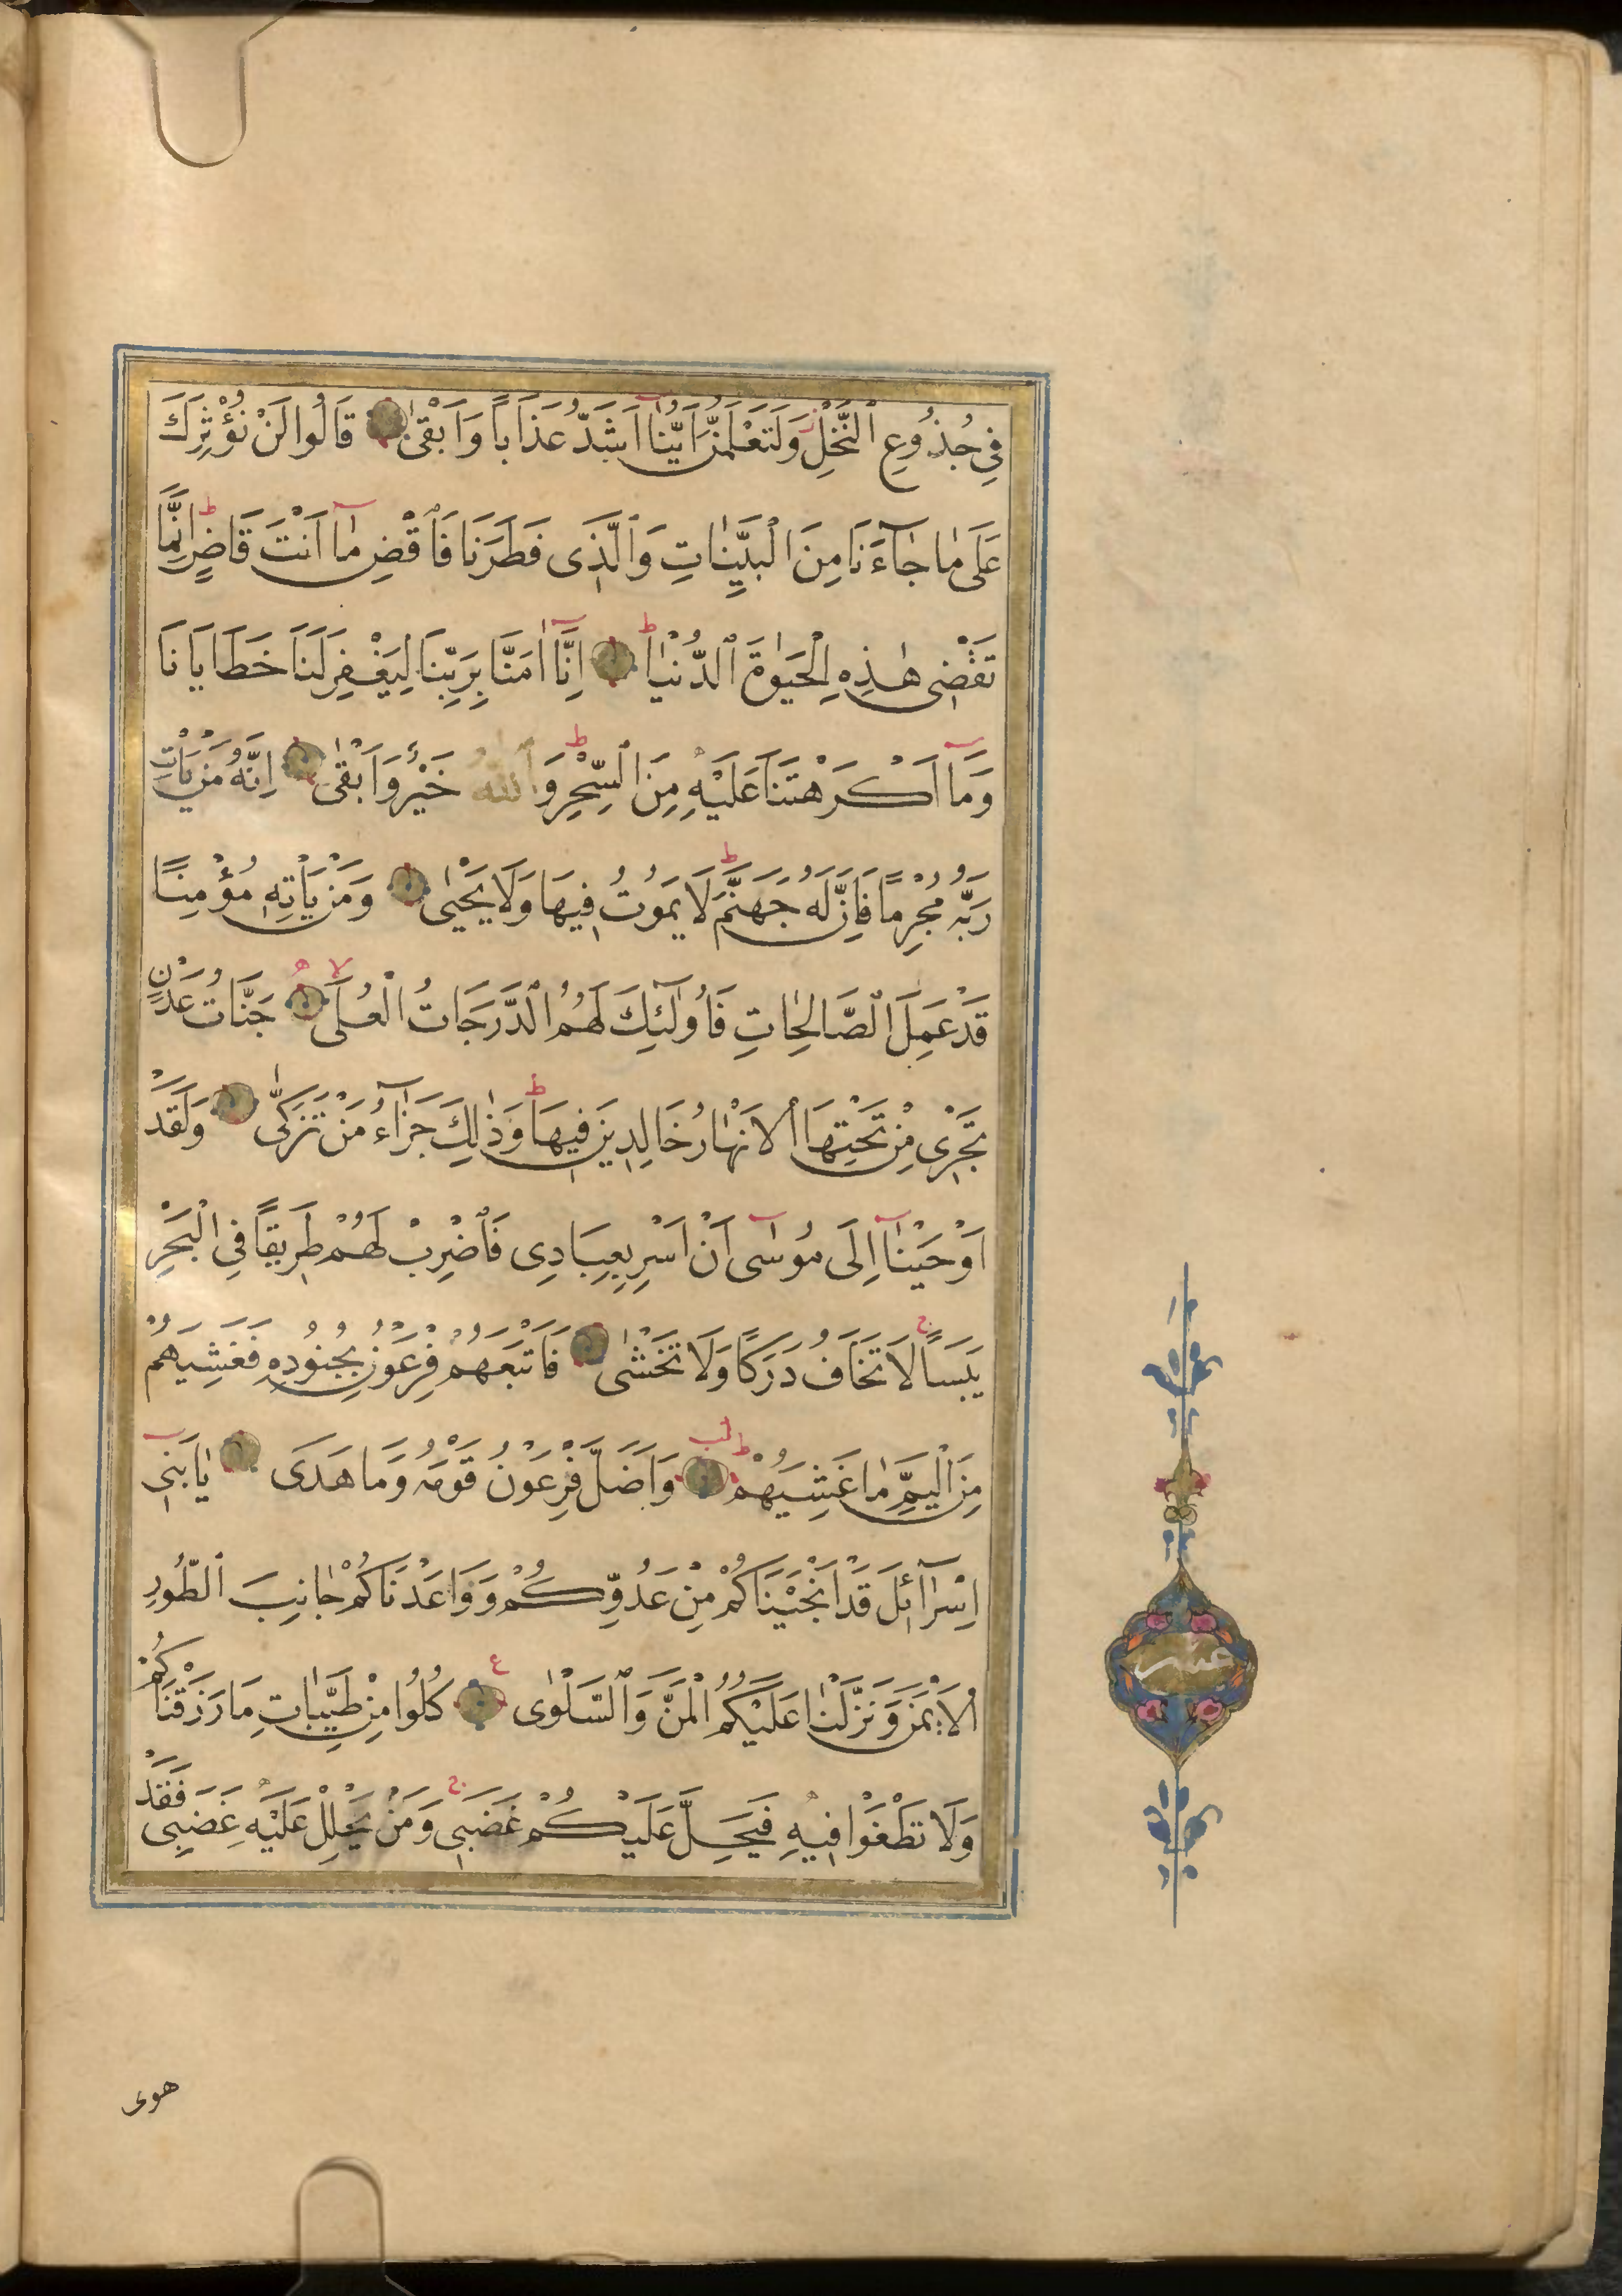 فِي جُذُوعِ ٱلنَّخْلِ وَلَتَعْلَمُنَّ اَيُّنَآ اَشَدُّ عَذَاباً وَاَبْقٰى قَالُوا لَنْ نُؤْثِرَكَ
عَلٰى مَا جَآءَنَا مِنَ الْبَيِّنَاتِ وَٱلَّذِى فَطَرَنَا فَاقْضِ مَآ اَنْتَ قَاضٍ اِنَّمَا
تَقْضِى هٰذِهِ الْحَيٰوةَ ٱلدُّنْيَا اِنَّآ اٰمَنَّا بِرَبِّنَا لِيَغْفِرَ لَنَا خَطَايَانَا
وَمَآ اَكْرَهْتَنَا عَلَيْهِ مِنَ ٱلسِّحْرِ وَٱللّٰهُ خَيْرٌ وَاَبْقٰى اِنَّهُ مَنْ يَاْتِ
رَبَّهُ مُجْرِمًا فَاِنَّ لَهُ جَهَنَّمَ لَا يَمُوتُ فِيهَا وَلَا يَحْيٰى وَمَنْ يَاْتِهِ مُؤْمِنًا
قَدْ عَمِلَ ٱلصَّالِحَاتِ فَاُولٰٓئِكَ لَهُمُ ٱلدَّرَجَاتُ الْعُلٰى جَنَّاتُ عَدْنٍ
تَجْرِى مِنْ تَحْتِهَا ٱلْاَنْهَارُ خَالِدِينَ فِيهَا وَذٰلِكَ جَزَآءُ مَنْ تَزَكّٰى وَلَقَدْ
اَوْحَيْنَآ اِلٰى مُوسٰٓى اَنْ اَسْرِ بِعِبَادِى فَاضْرِبْ لَهُمْ طَرِيقاً فِي الْبَحْرِ
يَبَسًا لَا تَخَافُ دَرَكًا وَلَا تَخْشٰى فَاَتْبَعَهُمْ فِرْعَوْنُ بِجُنُودِهِ فَغَشِيَهُمْ
مِنَ الْيَمِّ مَا غَشِيَهُمْ وَاَضَلَّ فِرْعَوْنُ قَوْمَهُ وَمَا هَدَى يَا بَنِى
اِسْرَآئِلَ قَدْ اَنْجَيْنَاكُمْ مِنْ عَدُوِّكُمْ وَوَاعَدْنَاكُمْ جَانِبَ ٱلطُّورِ
ٱلْاَيْمَنَ وَنَزَّلْنَا عَلَيْكُمُ الْمَنَّ وَٱلسَّلْوٰى كُلُوا مِنْ طَيِّبَاتِ مَا رَزَقْنَاكُمْ
وَلَا تَطْغَوْا فِيهِ فَيَحِلَّ عَلَيْكُمْ غَضَبِى وَمَنْ يَحْلِلْ عَلَيْهِ غَضَبِى فَقَدْ
عشر
هوى